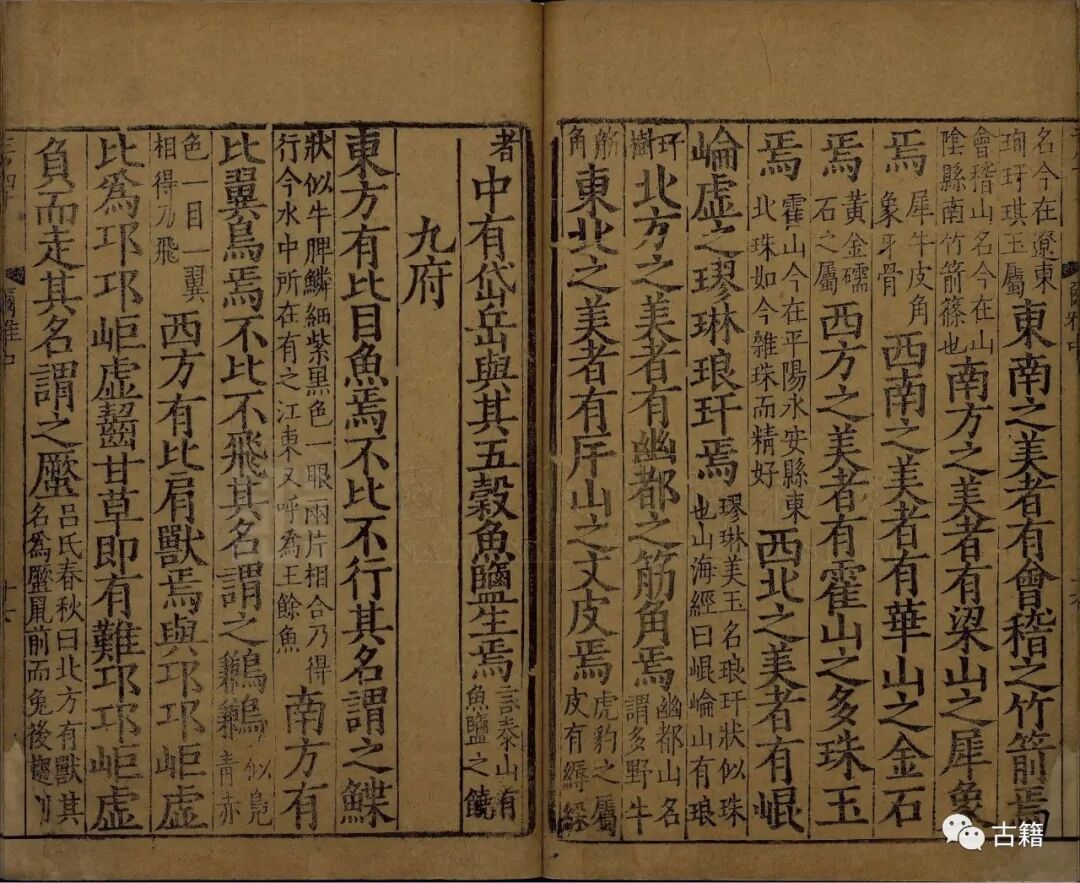 爾雅中
名今在遼東珣玗琪玉屬東南之美者有會稽之竹箭焉
會稽山名今在山陰縣南竹箭篠也南方之美者有梁山之犀象
焉犀牛皮角象牙骨西南之美者有華山之金石
焉黃金礝石之屬西方之美者有霍山之多珠玉
焉霍山今在平陽永安縣東北珠如今雜珠而精好西北之美者有崐
崘虛之璆琳琅玕焉璆琳美玉名琅玕狀似珠也山海經曰崐崘山有琅
玕樹北方之美者有幽都之筋角焉幽都山名謂多野牛
筋角東北之美者有斥山之文皮焉虎豹之屬皮有縟綵
者中有岱岳與其五穀魚鹽生焉言泰山有魚鹽之饒
九府
東方有比目魚焉不比不行其名謂之鰈
狀似牛脾鱗細紫黑色一眼兩片相合乃得行今水中所在有之江東又呼爲王餘魚南方有
比翼鳥焉不比不飛其名謂之鶼鶼似鳧青赤
色一目一翼相得乃飛西方有比肩獸焉與邛邛岠虛
比爲邛邛岠虛齧甘草即有難邛邛岠虛
負而走其名謂之蟨呂氏春秋曰北方有獸其名爲蟨鼠前而兔後趨則
爾雅中
古籍